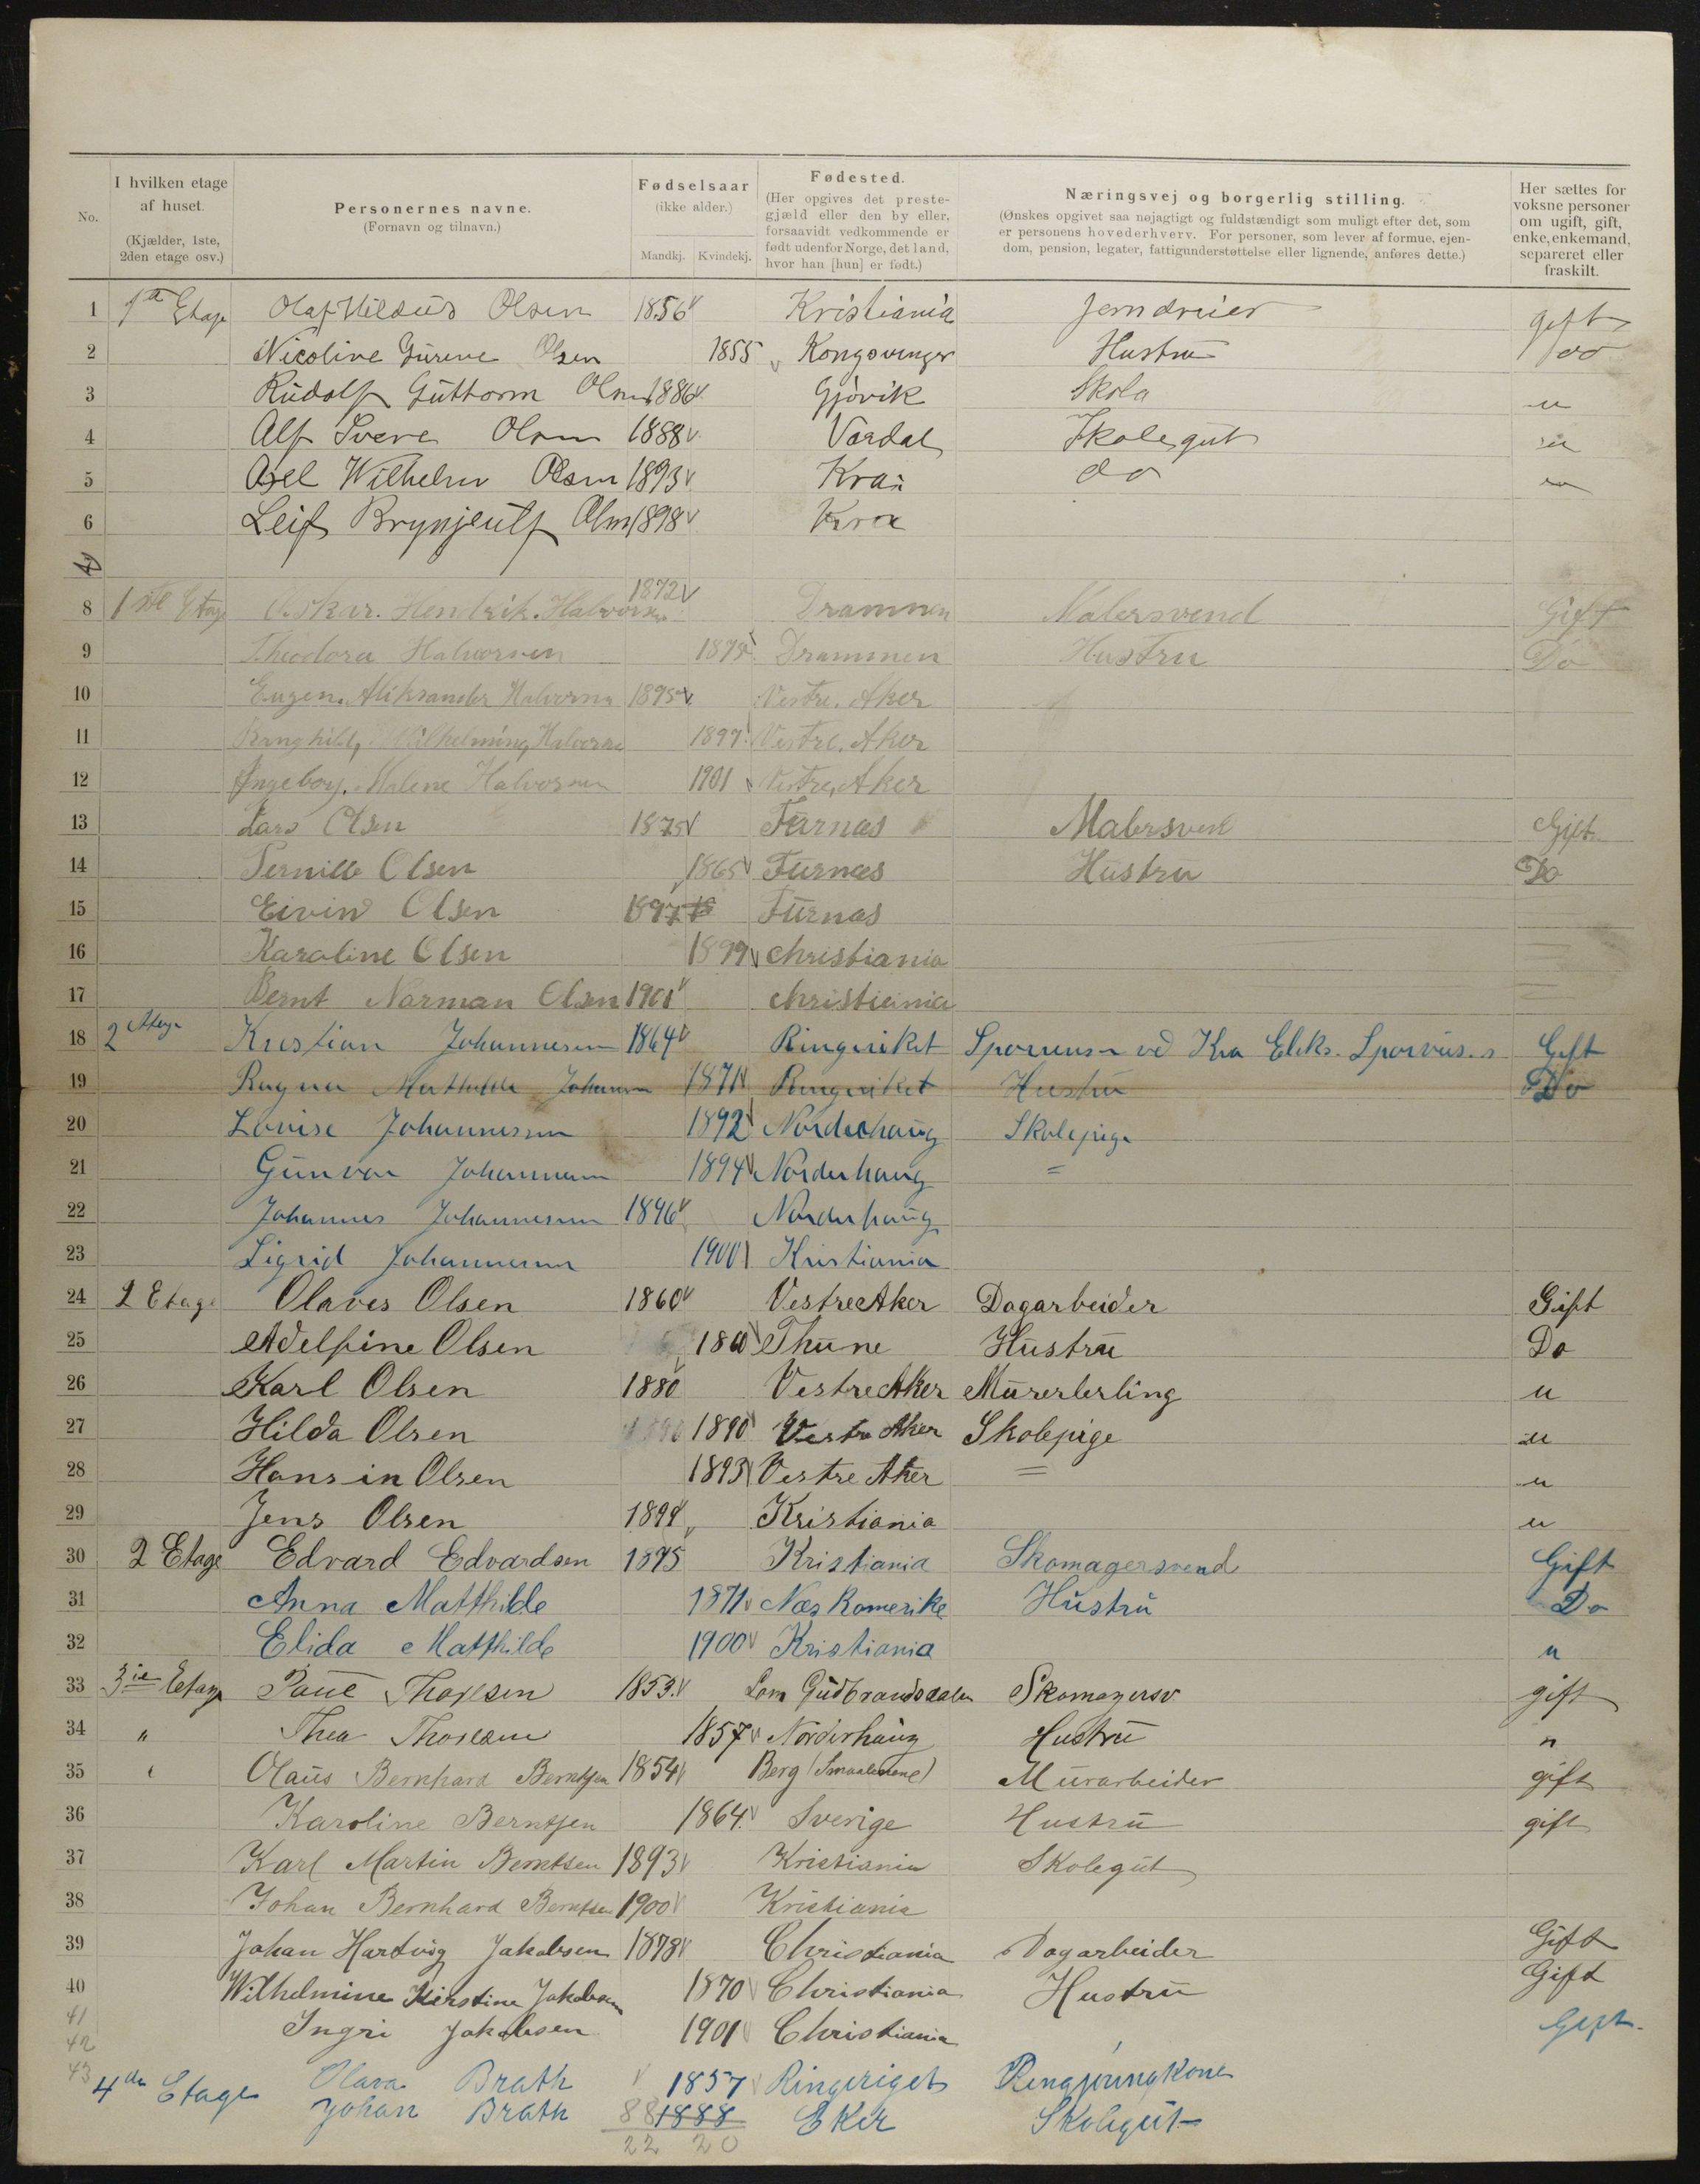 No. | I hvilken etage af huset. (Kjælder, 1ste, 2den etage osv.) | Personernes navne. (Fornavn og tilnavn.) | Fødselsaar (ikke alder.) Mandkj. Kvindekj. | Fødested. (Her opgives det prestegjæld eller den by eller, forsaavidt vedkommende er født udenfor Norge, det land, hvor han [hun] er født.) | Næringsvej og borgerlig stilling. (Ønskes opgivet saa nøjagtigt og fuldstændigt som muligt efter det, som er personens hovederhverv. For personer, som lever af formue, ejendom, pension, legater, fattigunderstøttelse eller lignende, anføres dette.) | Her sættes for voksne personer om ugift, gift, enke, enkemand, separeret eller fraskilt.
1 Etage Olaf Olsen 1856 Kristiania Jerndreier gift
2 Nicoline Olsen 1855 Kongsvinger Hustru do
3 Rudolf Guttorm Olsen 1886 Gjövik Skola u
4 Alf Sverre Olsen 1888 Vardal Skolegut u
5 Axel Wilhelm Olsen 1893 Kra do u
6 Leif Brynjeulf Olsen 1898 Kra
8 1ste Etage Oskar. Hendrik. Halvorsen 1872 Drammen Malersvend Gift
9 Theodora Halvorsen Drammen Hustru Do
10 Eugen. Aliksander Halvorsen 1895 Vestre. Aker
11 Wilhelmine Halvorsen 1897 Vestre. Aker
12 Ingeborg. Malene Halvorsen 1901 Vestre, Aker
13 Lars Olsen 1875 Furnas Malersven Gift
14 Pernille Olsen 1865 Furnas Hustru Do
15 Eivind Olsen 1897 Furnas
16 Karoline Olsen 1899 christiania
17 Bernt Narman Olsen 1901 christiania
18 2 Etage Kristian Johannesen 1864 Ringeriket ved Kra Eleks. Gift
19 Ragna Mathilde Johannesen 1871 Ringeriket Hustru Do
20 Lovise Johannesen 1892 Norderhaug Skolepige
21 Gunvor Johannesen 1894 Norderhaug =
22 Johannes Johannesen 1896 Norderhaug
23 Sigrid Johannesen 1900 Kristiania
24 2 Etage Olaves Olsen 1860 Vestre Aker Dagarbeider Gift
25 Adelfine Olsen 1860 Thune Hustru Do
26 Karl Olsen 1880 Vestre Aker Murerlerling u
27 Hilda Olsen 1890 Vestre Aker Skolepige u
28 Hansin Olsen 1893 Vestre Aker = u
29 Jens Olsen 1899 Kristiania u
30 2 Etage Edvard Edvardsen 1875 Kristiania Skomagersvend Gift
31 Anna Matthilde 1871 Næs Romerike Hustru Do
32 Elida Matthilde 1900 Kristiania u
33 3ie Etage Paul Thoresen 1853 Lom Gudbrandsdalen Skomagersv gift
34 " Thea Thoresen 1857 Norderhaug Hustru "
35 " Olaus Bernhard Berntsen 1854 Berg (Smaalenene) Murarbeider gift
36 Karoline Berntsen 1864 Sverige Hustru gift
37 Karl Martin Berntsen 1893 Kristiania Skolegut
38 Johan Bernhard Berntsen 1900 Kristiania
39 Johan Hartvig Jakobsen 1878 Christiania Dagarbeider Gift
40 Wilhelmine Kirstine Jakobsen 1870 Christiania Hustru Gift
41 Ingri Jakobsen 1901 Christiania Gift
42
43 4de Etage Olava Brath 1857 Ringeriget Rengjöringkone
Johan Brath 88 1888 Eker Skolegut
22 20